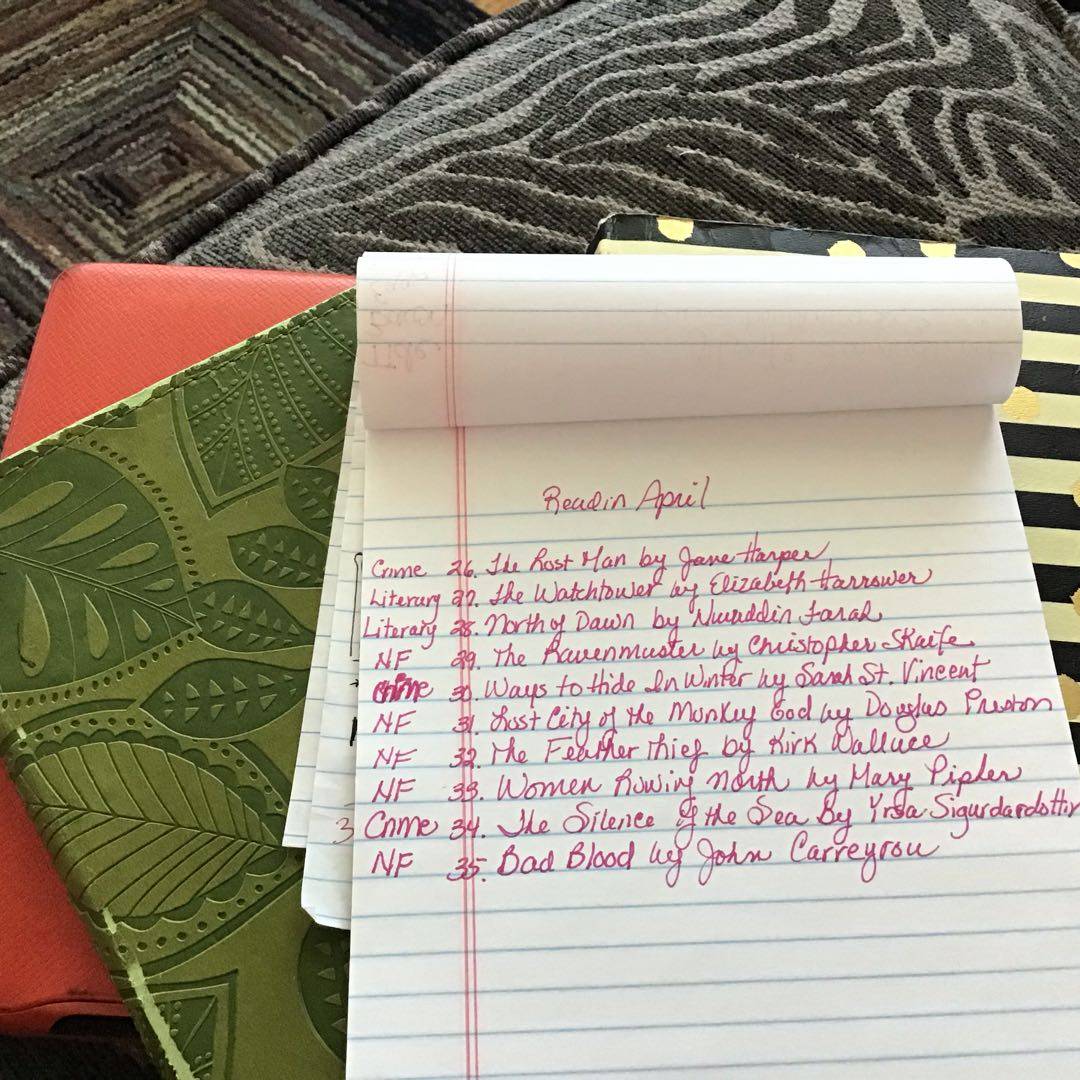 Read in April
Crime 26. The Lost Man by Jane Harper
Literary 27. The Watchtower by Elizabeth Harrower
Literary 28. North of Dawn by Nuruddin Farah
NF 29. The Ravenmaster by Christopher Skaife
Crime 30. Ways to Hide In Winter by Sarah St. Vincent
NF 31. Lost City of the Monkey God by Douglas Preston
NF 32. The Feather Thief by Kirk Wallace
NF 33. Women Rowing North by Mary Pipher
3
Crime 34. The Silence of the Sea By Yrsa Sigurdardottir
NF 35. Bad Blood by John Carreyrou